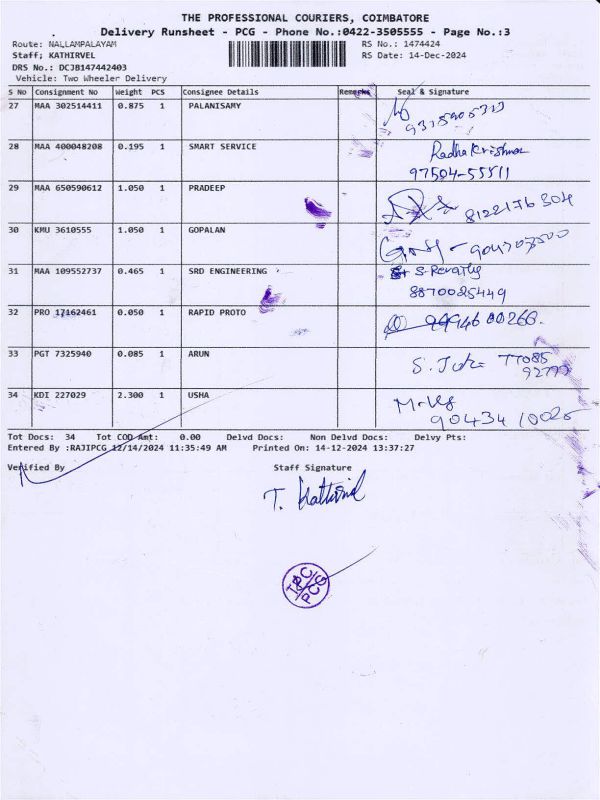 THE PROFESSIONAL COURIERS, COIMBATORE
Delivery Runsheet - PCG - Phone No.:0422-3505555 - Page No.:3
Route: NALLAMPALAYAM RS No.: 1474424
Staff; KATHIRVEL RS Date: 14-Dec-2024
DRS No.: DCJB147442403
Vehicle: Two Wheeler Delivery
S No Consignment No Weight PCS Consignee Details Remarks Seal & Signature
27 MAA 302514411 0.875 1 PALANISAMY
28 MAA 400048208 0.195 1 SMART SERVICE Radha Krishnan
97504-55511
29 MAA 650590612 1.050 1 PRADEEP 8122176304
30 KMU 3610555 1.050 1 GOPALAN
31 MAA 109552737 0.465 1 SRD ENGINEERING S-Revathy
8870025449
32 PRO 17162461 0.050 1 RAPID PROTO
33 PGT 7325940 0.085 1 ARUN
34 KDI 227029 2.300 1 USHA
90434 10025
Tot Docs: 34 Tot COD Amt: 0.00 Delvd Docs: Non Delvd Docs: Delvy Pts:
Entered By :RAJIPCG 12/14/2024 11:35:49 AM Printed On: 14-12-2024 13:37:27
Verified By Staff Signature
T. Kathirvel
TPC
PCG